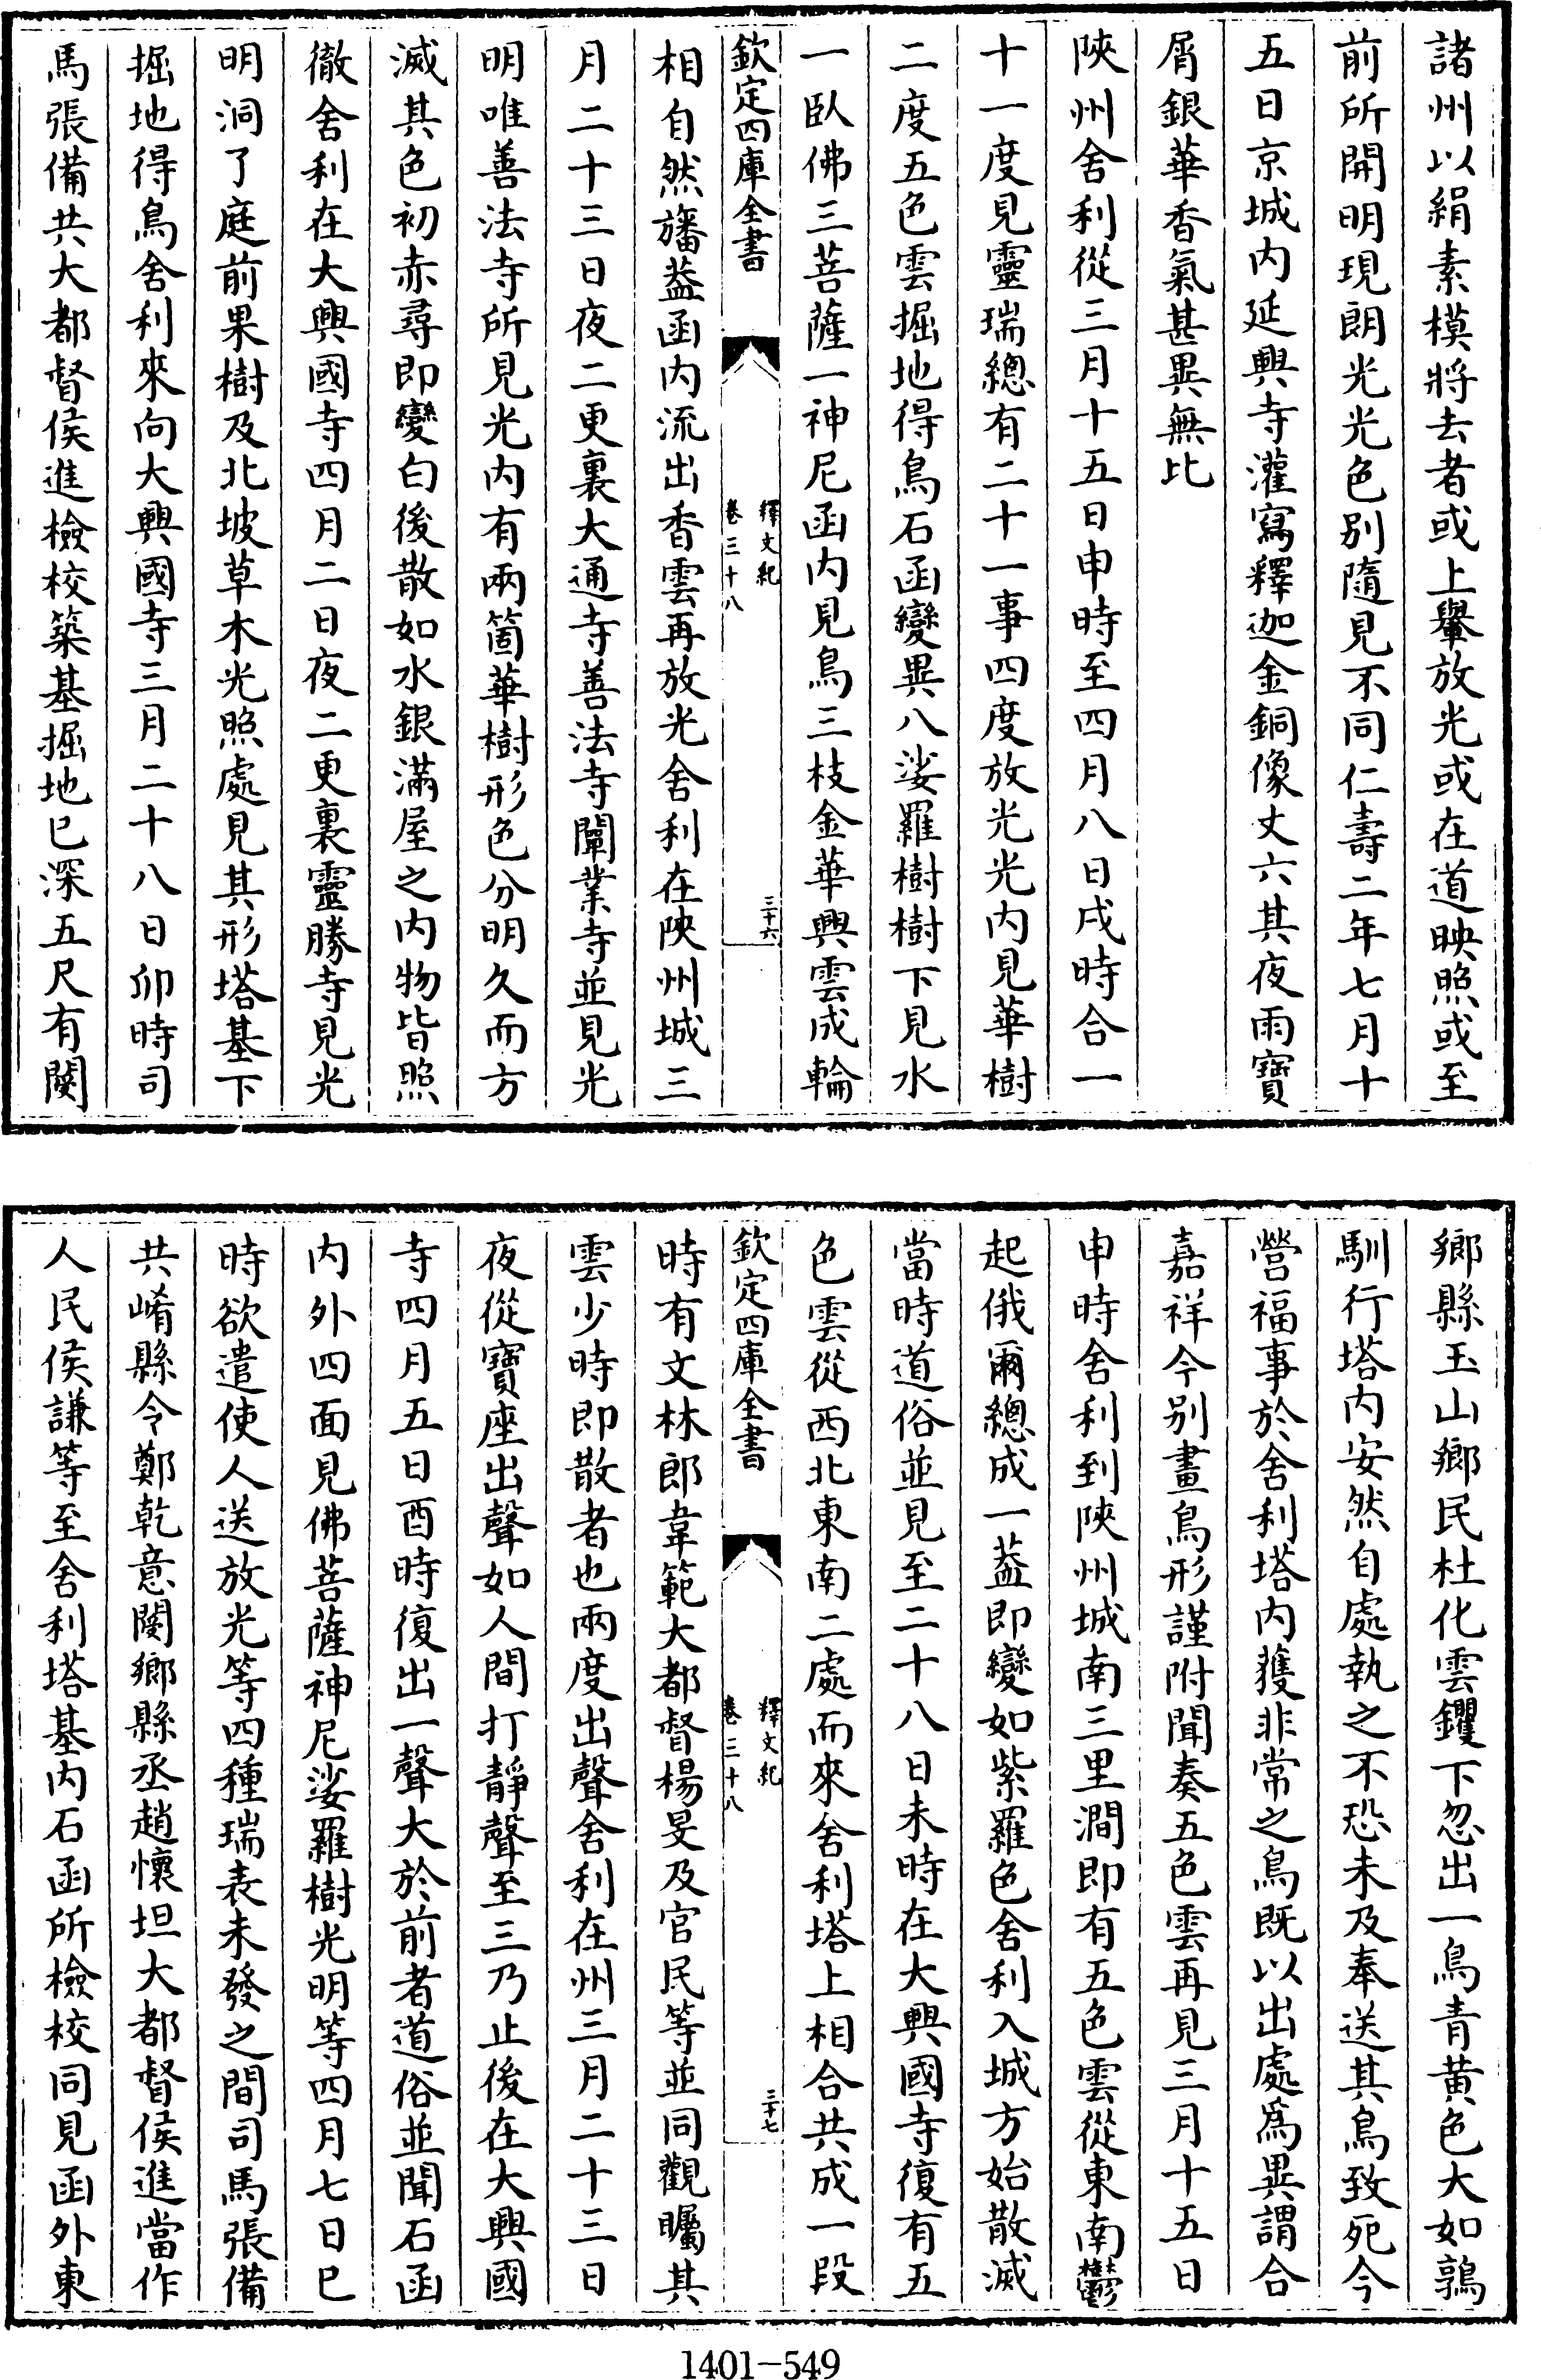 諸州以絹素模將去者或上轝放光或在道映照或至
前所開明現朗光光色别隨見不同仁壽二年七月十
五日京城内延興寺灌寫釋迦金銅像丈六其夜雨寶
屑銀華香氣甚異無比
陜州舍利從三月十五日申時至四月八日戌時合一
十一度見靈瑞總有二十一事四度放光光内見華樹
二度五色雲掘地得鳥石函變異八娑羅樹樹下見水
一臥佛三菩薩一神尼函内見鳥三枝金華興雲成輪
欽定四庫全書
釋文紀
卷三十八
三十六
相自然旛葢函内流出香雲再放光舍利在陜州城三
月二十三日夜二更裏大通寺善法寺闡業寺並見光
明唯善法寺所見光内有兩箇華樹形色分明久而方
滅其色初赤尋即變白後散如水銀滿屋之内物皆照
徹舍利在大興國寺四月二日夜二更裏靈勝寺見光
明洞了庭前果樹及北坡草木光照處見其形塔基下
掘地得鳥舍利來向大興國寺三月二十八日卯時司
馬張備共大都督侯進檢校築基掘地已深五尺有閿
鄉縣玉山鄉民杜化雲钁下忽出一鳥青黄色大如鶉
馴行塔内安然自處執之不恐未及奉送其鳥致死今
營福事於舍利塔内獲非常之鳥既以出處爲異謂合
嘉祥今别畫鳥形謹附聞奏五色雲再見三月十五日
申時舍利到陜州城南三里澗即有五色雲從東南鬱
起俄爾總成一葢即變如紫羅色舍利入城方始散滅
當時道俗並見至二十八日未時在大興國寺復有五
色雲從西北東南二處而來舍利塔上相合共成一段
欽定四庫全書
釋文紀
卷三十八
三十七
時有文林郎韋範大都督楊旻及官民等並同觀矚其
雲少時即散者也兩度出聲舍利在州三月二十三日
夜從寶座出聲如人間打靜聲至三乃止後在大興國
寺四月五日酉時復出一聲大於前者道俗並聞石函
内外四面見佛菩薩神尼娑羅樹光明等四月七日巳
時欲遣使人送放光等四種瑞表未發之間司馬張備
共崤縣令鄭乾意閿鄉縣丞趙懷坦大都督侯進當作
人民侯謙等至舍利塔基内石函所檢校同見函外東
1401-549